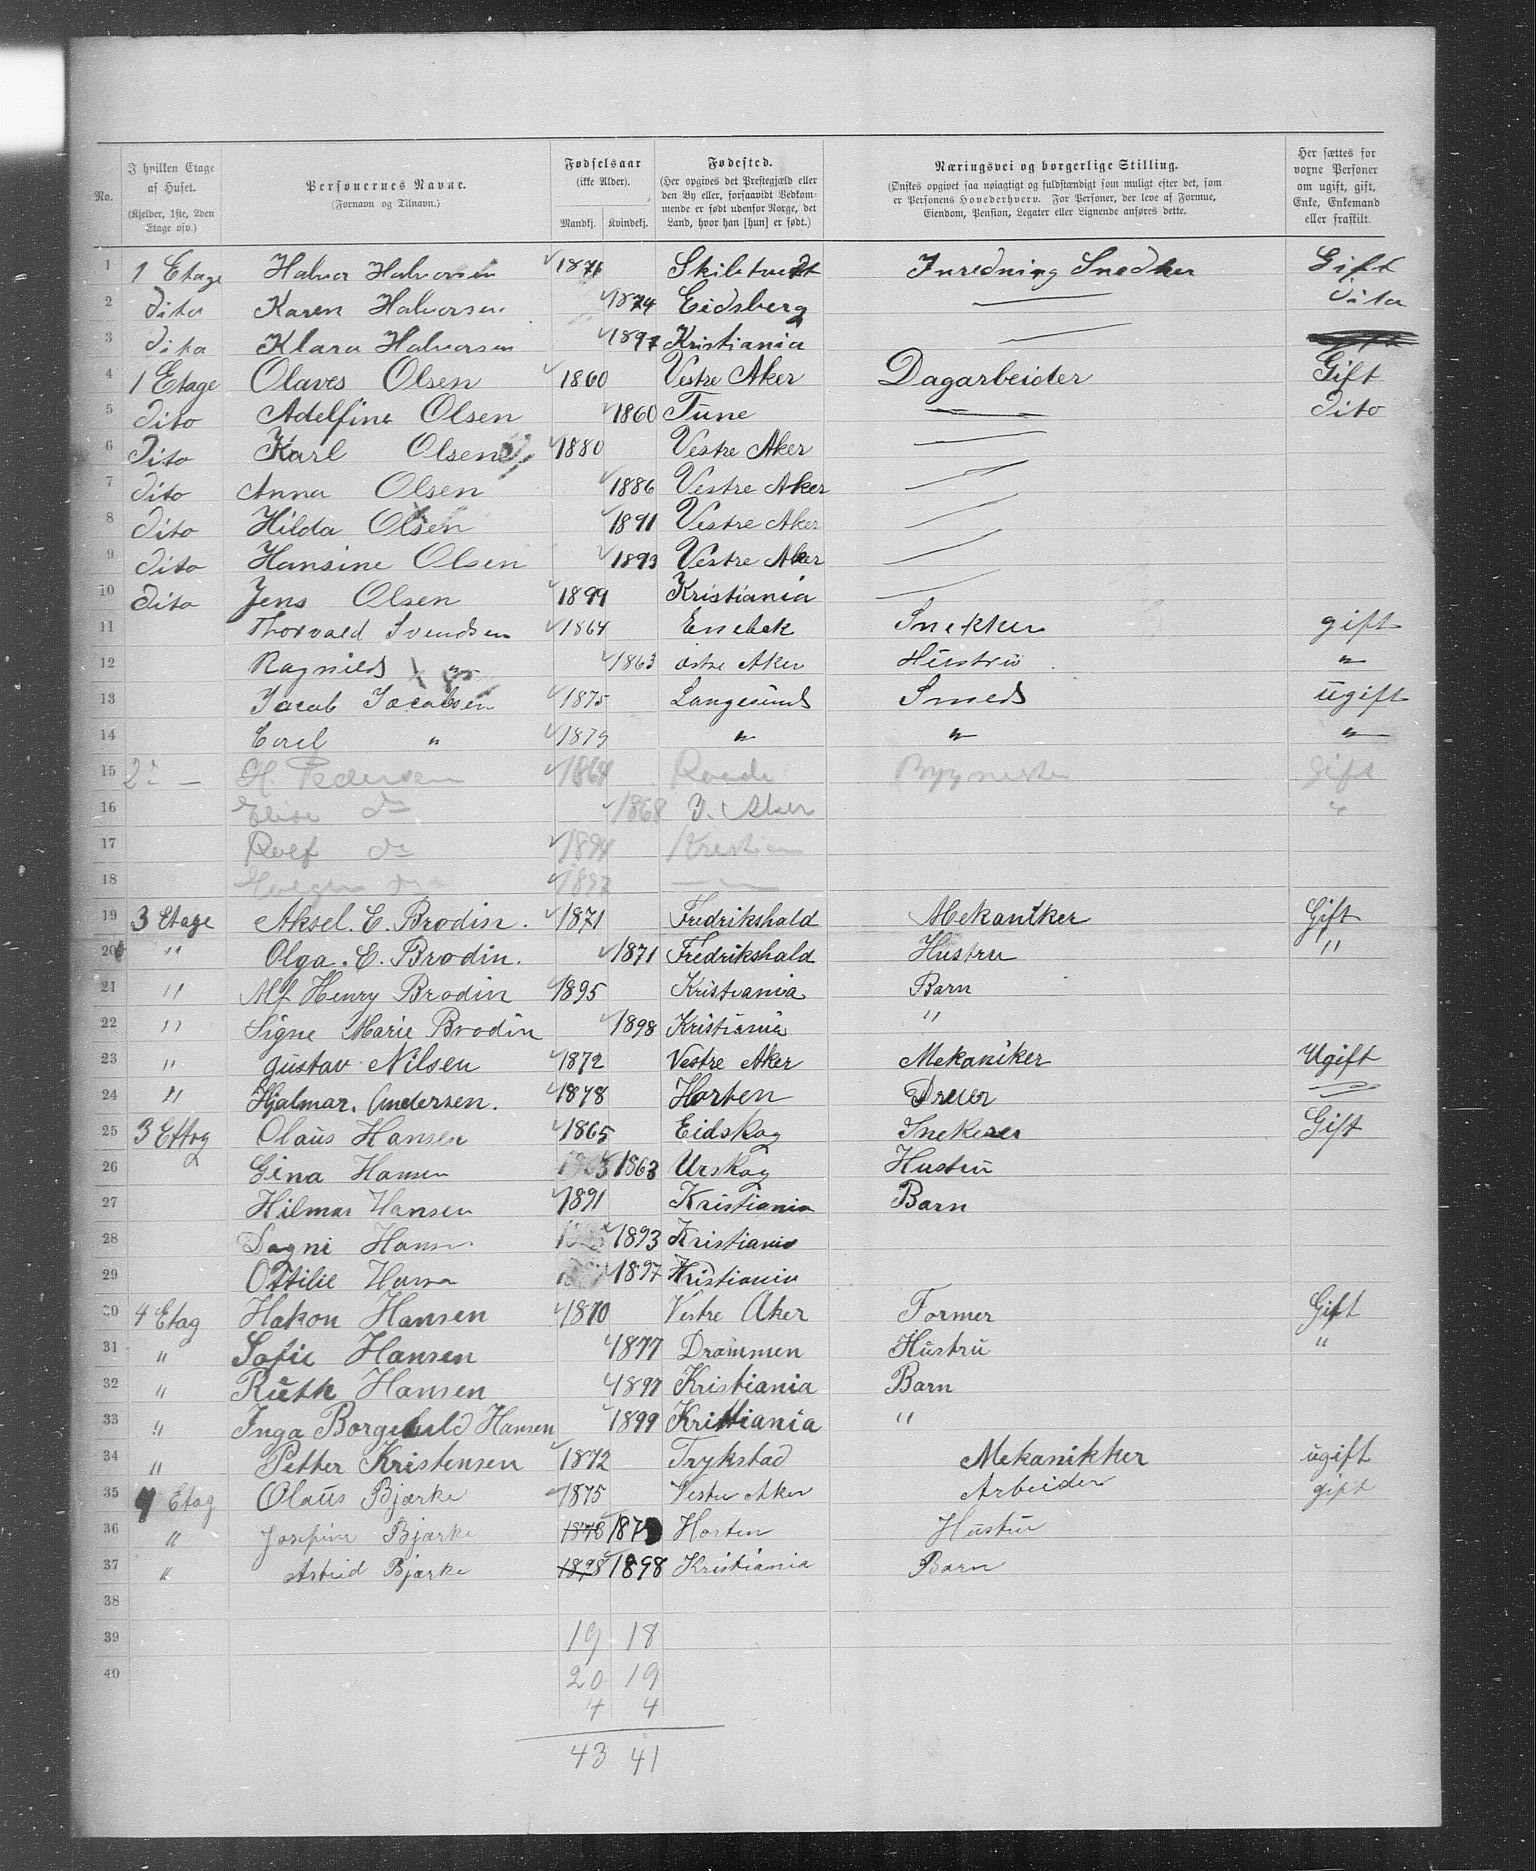 No. | I hvilken Etage af Huset. (Kjelder, 1ste, 2den Etage osv.) | Personernes Navne. (Fornavn og Tilnavn.) | Fødselsaar (ikke Alder). Mandkj. Kvindekj. | Fødested. (Her opgives det Prestegjæld eller den By eller, forsaavidt Vedkommende er født udenfor Norge, det Land, hvor han [hun] er født.) | Næringsvei og borgerlige Stilling. (Ønskes opgivet saa nøiagtigt og fuldstændigt som muligt efter det, som er Personens Hovederhverv. For Personer, der leve af Formue, Eiendom, Pension, Legater eller Lignende anføres dette. | Her sættes for voxne Personer om ugift, gift, Enke, Enkemand eller fraskilt.
1 1 Etage Halvor Halvorsen 1876 Skibtvedt Inredning Snedker Gift
2 Dito Karen Halvorsen 1874 Eidsberg — Dito
3 Dito Klara Halvorsen 1897 Kristiania —
4 1 Etage Olaves Olsen 1860 Vestre Aker Dagarbeider Gift
5 Dito Adelfine Olsen 1860 Tune — Dito
6 Dito Karl Olsen 1880 Vestre Aker —
7 Dito Anna Olsen 1886 Vestre Aker —
8 Dito Hilda Olsen 1891 Vestre Aker —
9 Dito Hansine Olsen 1893 Vestre Aker —
10 Dito Jens Olsen 1899 Kristiania —
11 Thorvald Svendsen 1864 Enebak Snekker gift
12 Ragnild " 1863 østre Aker Hüstrü "
13 Jacob Jacobsen 1875 Langesund Smed ugift
14 Carl " 1879 " " "
15 2 — H. Pedersen 1864 Raade Gift
16 Elise do 1868 V. Aker "
17 Rolf do 1894 Kristiania
18 —
19 3 Etage Aksel. E. Brodin. 1871 Fredrikshald Mekaniker Gift
20 " Olga. E. Brodin. 1871 Fredrikshald Hüstru "
21 " Alf Henry Brodin 1895 Kristiania Barn
22 " Signe Marie Brodin 1898 Kristiania "
23 " Güstav Nilsen 1872 Vestre Aker Mekaniker Ugift
24 " Hjalmar. Andersen. 1878 Horten Dreier —
25 3 Etag Olaüs Hansen 1865 Eidskog Snekerer Gift
26 Gina Hansen 1863 Urskog Hustrü
27 Hilmar Hansen 1891 Kristiania Barn
28 Dagni Hansn 1893 Kristiania
29 Ottilie Hansn 1897 Kristiania
30 4 Etag Hakon Hansen 1870 Vestre Aker Former Gift
31 " Sofie Hansen 1877 Drammen Hüstrü "
32 " Rüth Hansen 1897 Kristiania Barn
33 " Inga Borghild Hansen 1899 Kristiania "
34 " Petter Kristensen 1872 Trykstad Mekanikker ugift
35 4 Etag Olaüs Bjærke 1875 Vestre Aker Arbeider gift
36 " Josefine Bjærke 1878 187 Horten Hüstrü
37 " Astrid Bjærke 1898 1898 Kristiania Barn
38
39 19 18
40 20 19
4 4
43 41